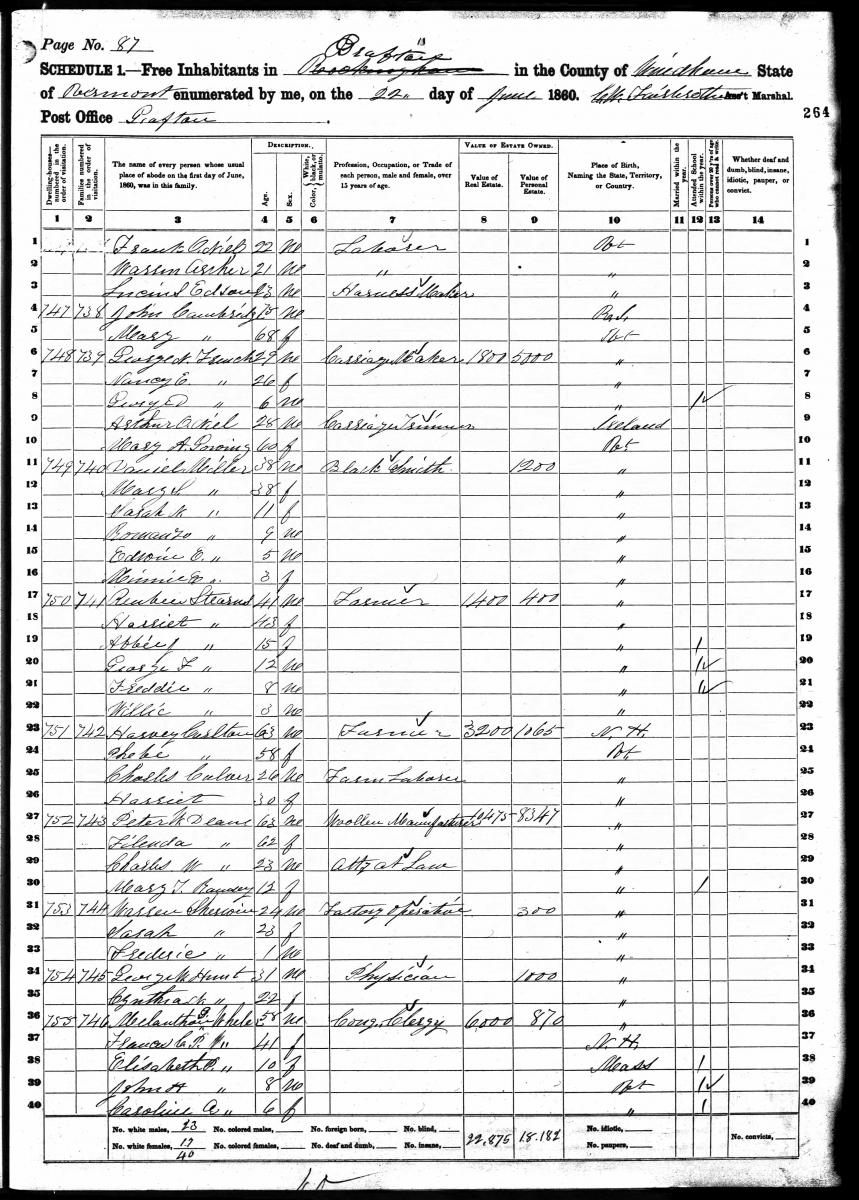 Page No. 87
Grafton
SCHEDULE 1.—Free Inhabitants in Rockingham in the County of Windham State
of Vermont enumerated by me, on the 22" day of June 1860. Ass't Marshal.
Post Office Grafton
264
Dwelling-houses—numbered in the order of visitation. Families numbered in the order of visitation. The name of every person whose usual place of abode on the first day of June, 1860, was in this family. DESCRIPTION. Age. Sex. Color, White, black, or mulatto. Profession, Occupation, or Trade of each person, male and female, over 15 years of age. VALUE OF ESTATE OWNED. Value of Real Estate. Value of Personal Estate. Place of Birth, Naming the State, Territory, or Country. Married within the year. Attended School within the year. Persons over 20 y'rs of age who cannot read & write. Whether deaf and dumb, blind, insane, idiotic, pauper, or convict.
1 2 3 4 5 6 7 8 9 10 11 12 13 14
1 Frank 22 m Laborer Vt 1
2 Warren 21 m " " 2
3 Lucius Edson 23 m Harness Maker " 3
4 747 738 John Cambridg 75 m 4
5 Mary " 68 f Vt 5
6 748 739 George N. French 29 m Carriage Maker 1800 5000 " 6
7 Nancy E. " 26 f " 7
8 George D " 6 m " 1 8
9 Arthur 28 m Carriage Trimmer Ireland 9
10 Mary A. 60 f Vt 10
11 749 740 Daniel Miller 38 m Black Smith 1200 " 11
12 Mary S. " 38 f " 12
13 Sarah " 11 f " 13
14 Romanzo " 9 m " 14
15 Edwin E. " 5 m " 15
16 Minnie " 3 f " 16
17 750 741 Reuben Stearns 41 m Farmer 1400 400 " 17
18 Harriet " 43 f " 18
19 Abbie J " 15 f " 1 19
20 George F " 12 m " 1 20
21 Freddie " 8 m " 1 21
22 Willie " 3 m " 22
23 751 742 Harvey Carlton 63 m Farmer 3200 1065 N. H. 23
24 Phebe " 58 f Vt 24
25 Charles Culver 26 m Farm Laborer " 25
26 Harriet 30 f " 26
27 752 743 Peter W Deane 63 m Woollen Manufacturer 10475 8347 " 27
28 Filenda " 62 f " 28
29 Charles W " 23 m Atty at Law " 29
30 Mary T. 12 f " 1 30
31 753 744 Warren Sherwin 24 m Factory Operative 300 " 31
32 Sarah " 23 f " 32
33 Frederic " 1 m " 33
34 754 745 George W Hunt 31 m Physician 1000 " 34
35 Cynthia " 22 f " 35
36 755 746 58 m Cong. Clergy 6000 870 " 36
37 41 f N. H. 37
38 Elisabeth " 10 f Mass 1 38
39 John H " 8 m Vt 1 39
40 Caroline A " 6 f " 1 40
No. white males, 23 No. colored males, No. foreign born, No. blind, 22,875 18.182 No. idiotic,
No. white females, 17 No. colored females, No. deaf and dumb, No. insane, No. paupers, No. convicts,
40